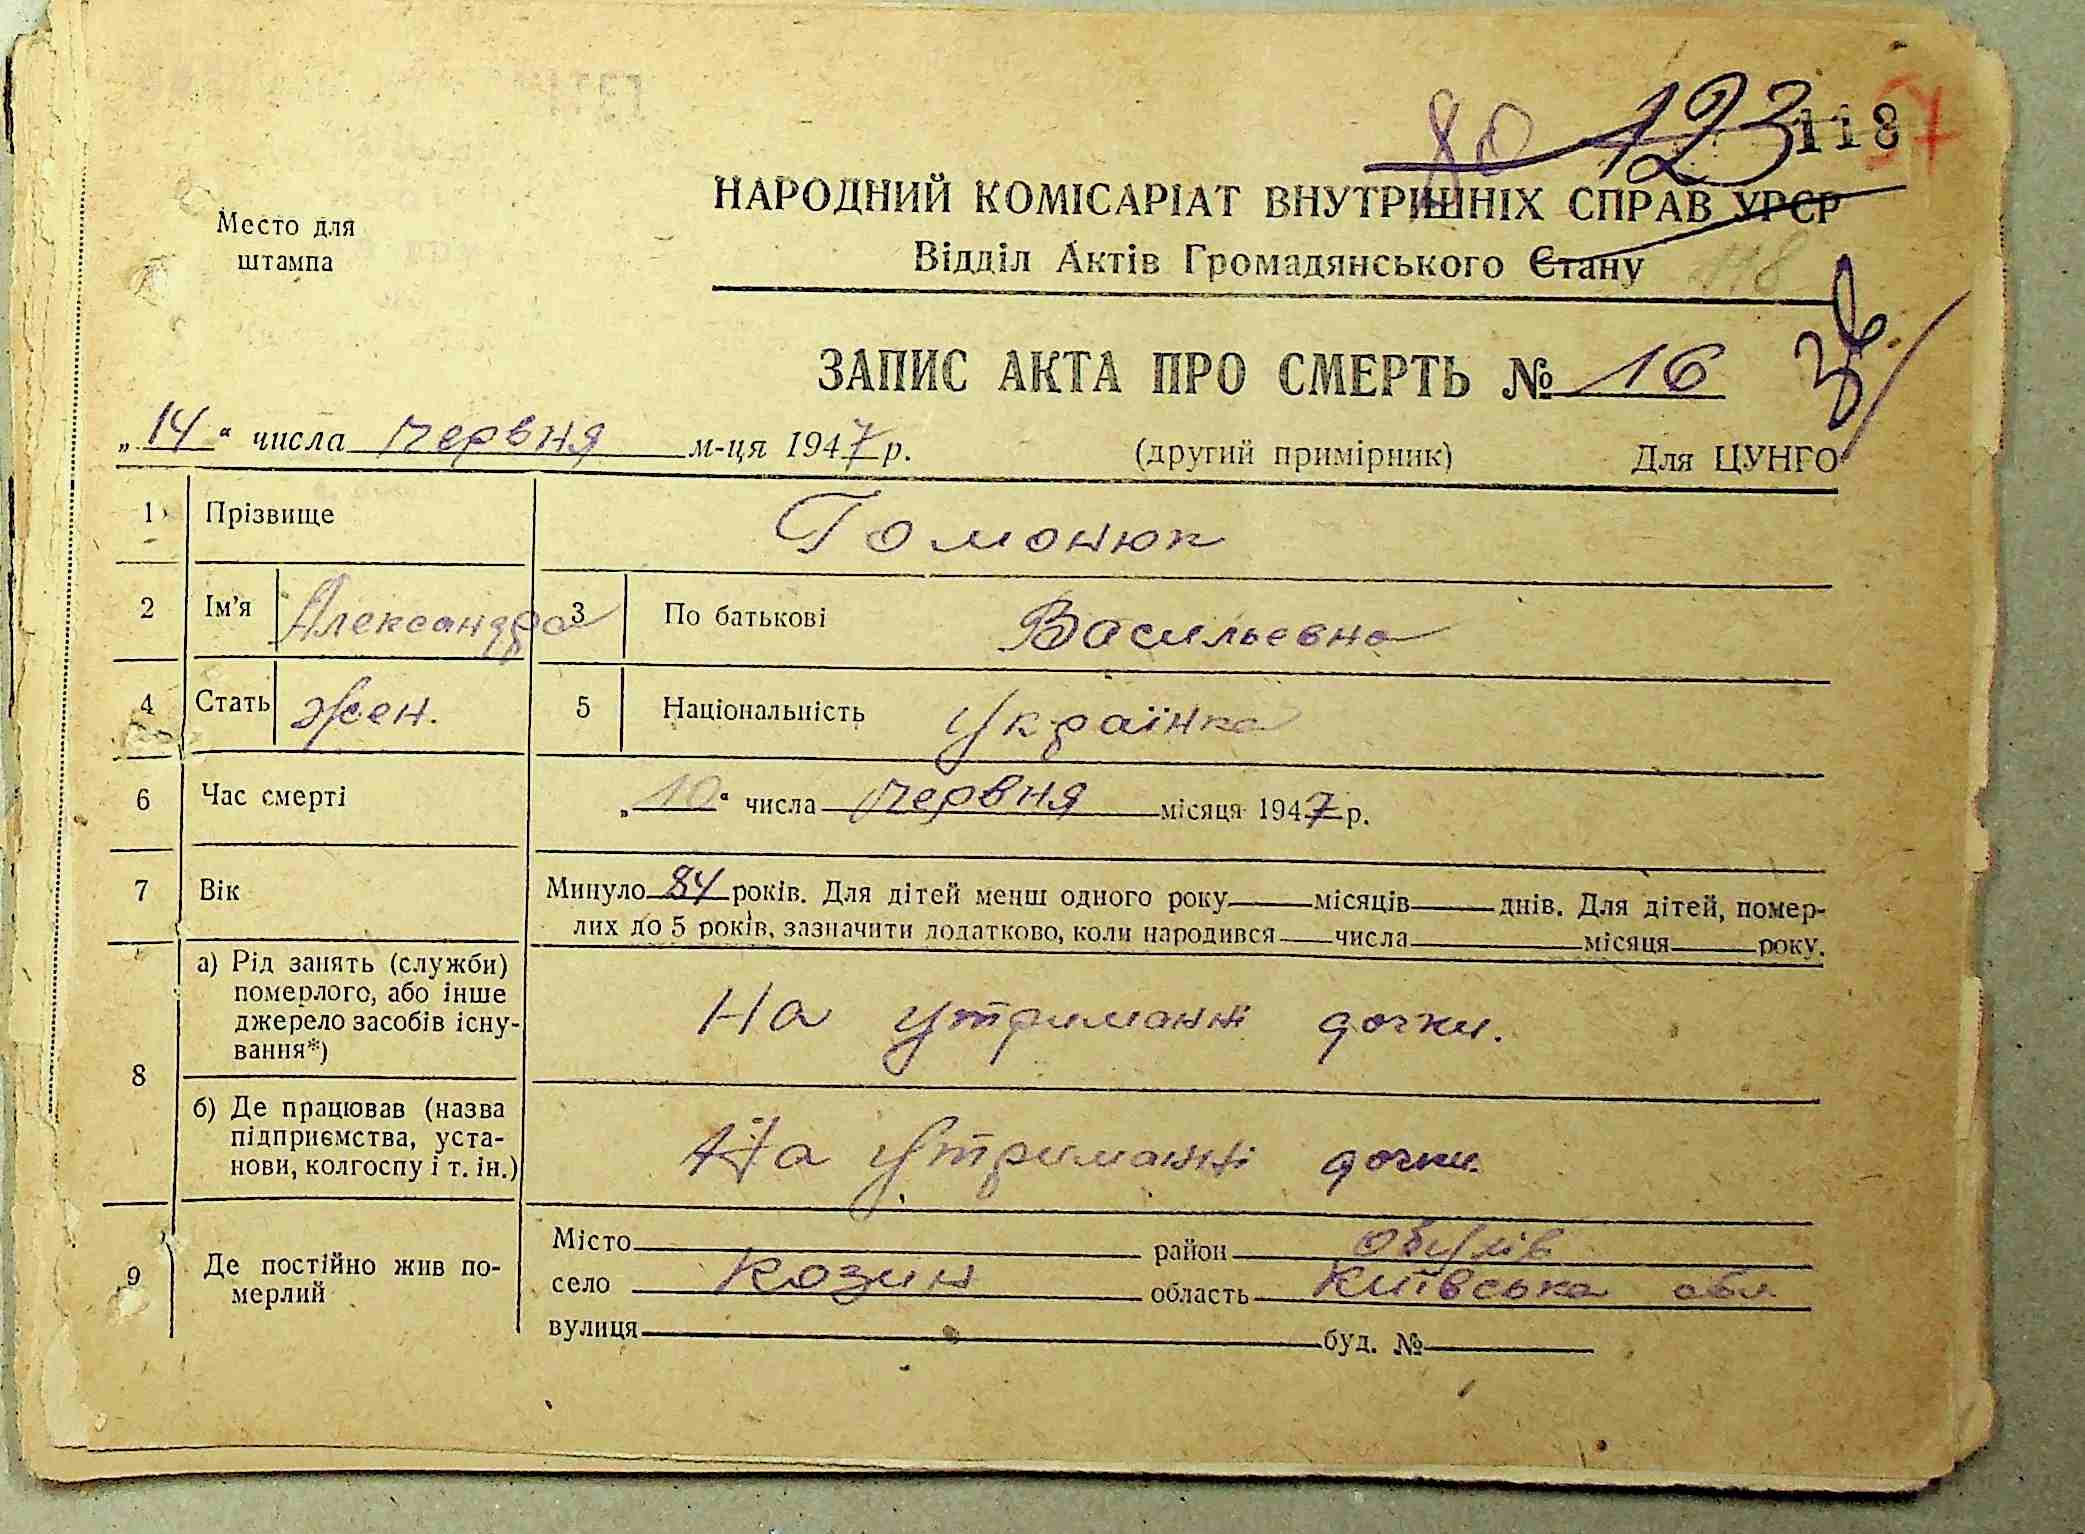 80 123 118 57
Место для
штампа
НАРОДНИЙ КОМІСАРІАТ ВНУТРІШНІХ СПРАВ УРСР
Відділ Актів Громадянського Стану
118
ЗАПИС АКТА ПРО СМЕРТЬ № 16
„14“ числа червня м-ця 1947 р. (другий примірник) Для ЦУНГО
1 Прізвище Гомонюк
2 Ім’я Александра 3 По батькові Васильевна
4 Стать жен. 5 Національність українка
6 Час смерті „10“ числа червня місяця 1947 р.
7 Вік Минуло 84 років. Для дітей менш одного року місяців днів. Для дітей, помер-
лих до 5 років, зазначити додатково, коли народився числа місяця року.
8 а) Рід занять (служби)
померлого, або інше
джерело засобів існу-
вання*)
На утриманні дочки.
б) Де працював (назва
підприємства, уста-
нови, колгоспу і т. ін.)
На утриманні дочки.
9 Де постійно жив по-
мерлий
Місто район Обухів
село Козин область Київська обл
вулиця буд. №